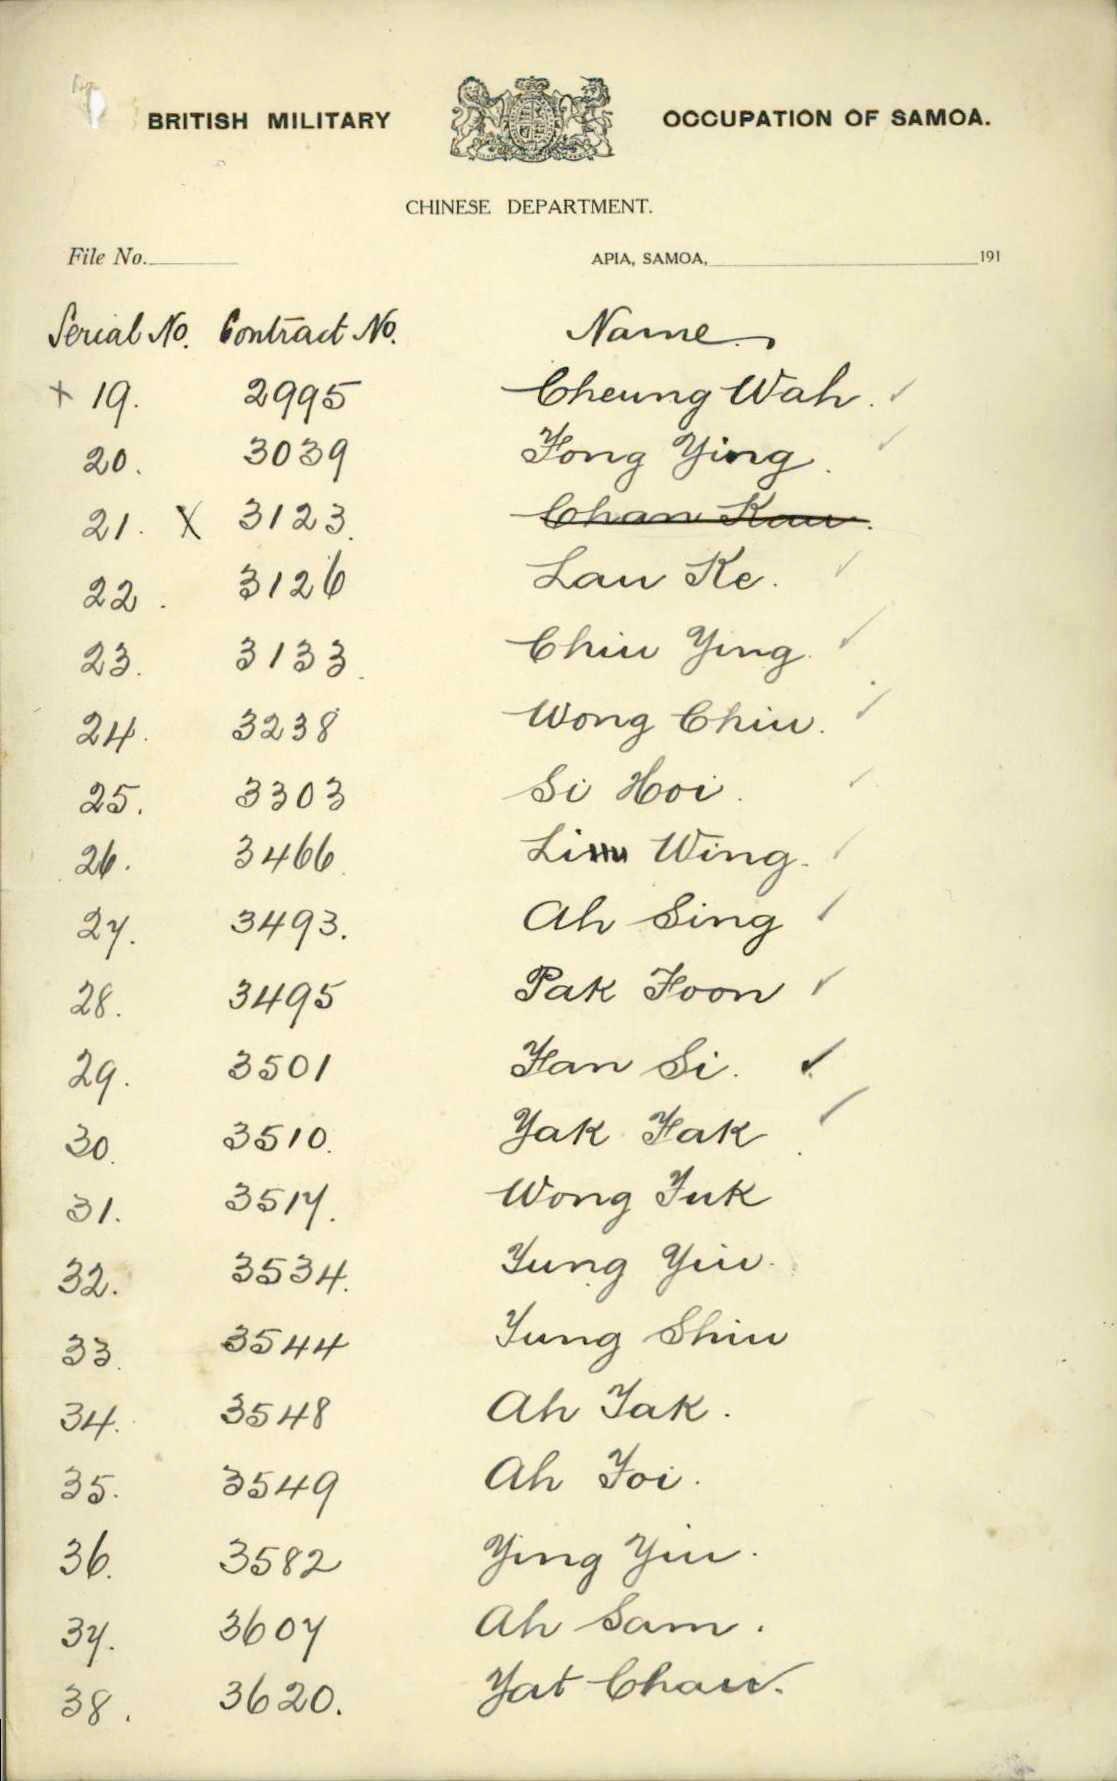 BRITISH MILITARY OCCUPATION OF SAMOA.
CHINESE DEPARTMENT.
File No. APIA, SAMOA, 191
Serial No. Contract No. Name.
+ 19. 2995 Cheung Wah. ✓
20. 3039 Fong Ying. ✓
21. X 3123. Chan Kau.
22. 3126 Lau Ke. ✓
23. 3133. Chiu Ying. ✓
24. 3238 Wong Chiu. ✓
25. 3303 Si Hoi. ✓
26. 3466. Wing. ✓
27. 3493. Ah Sing ✓
28. 3495 Pak Foon ✓
29. 3501 Fan Si. ✓
30. 3510. Yak Fak ✓
31. 3517. Wong Fuk
32. 3534. Yung Yiu.
33. 3544 Yung Shiu
34. 3548 Ah Tak.
35. 3549 Ah
36. 3582 Ying Yiu.
37. 3607 Ah Sam.
38. 3620. Yat Chau.